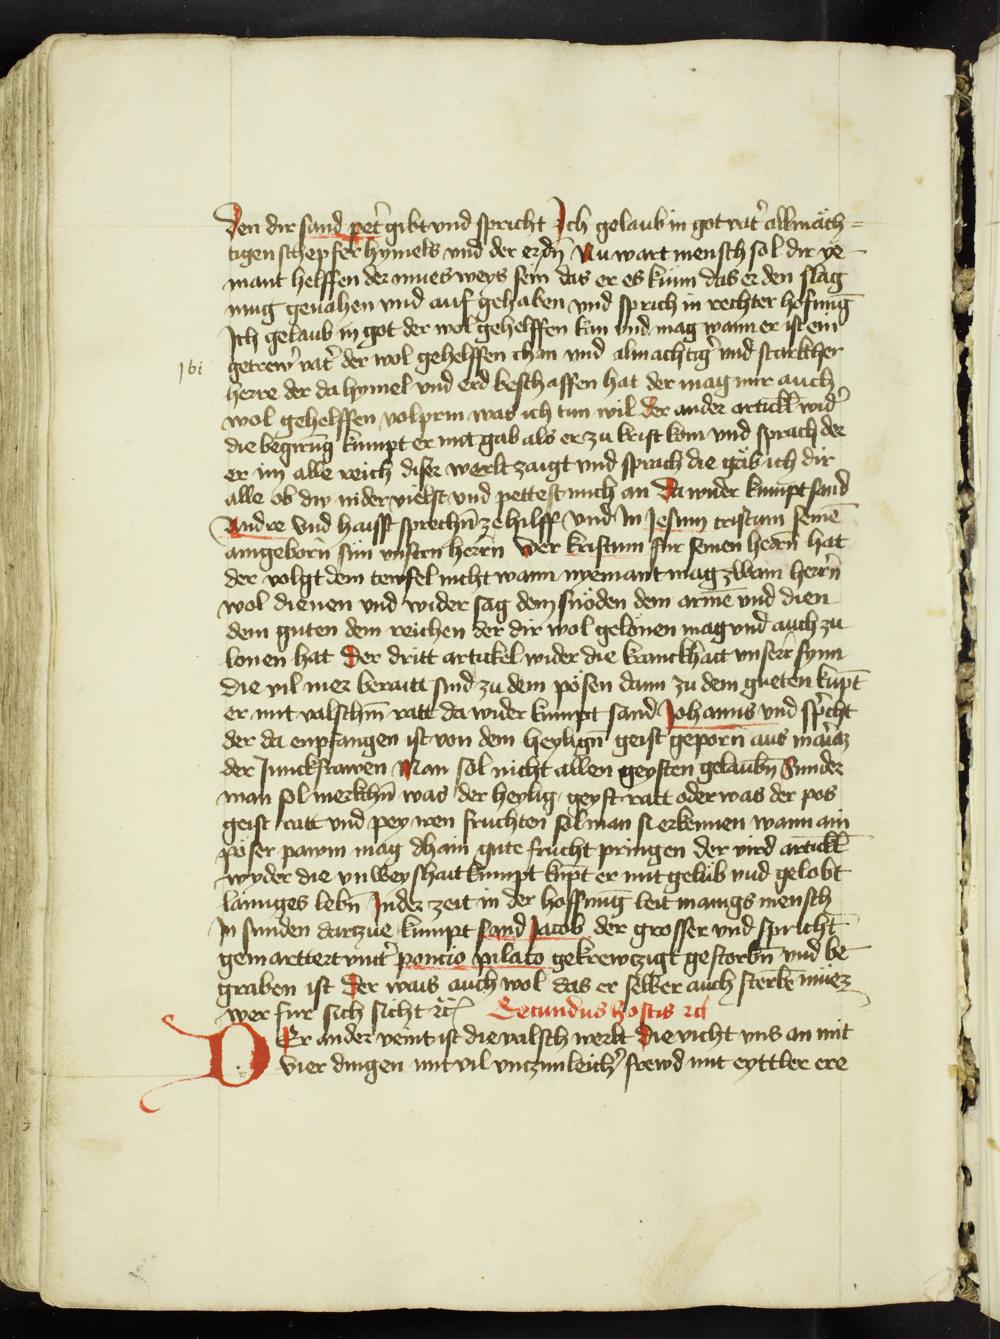 Den dir sand pet̓ gibt vnd spricht Ich gelaub in got vat̓ allmäch=
tigen schepfer hymels vnd der erdn̄ Nu wart mensch sol dir ye-
mant helffen der mues weys sein das er es künn das er den slag
mug genahen vnd auf gehaben vnd sprich in rechter hofnūg
Ich gelaub in got der wol gehelffen kan vnd mag wann er ist ein
getrew̓ vat̓ der wol gehelffen chan vnd almächtig̓ vnd starkher
herre der da hymel vnd erd beschaffen hat der mag mir auch
wol gehelffen volprin was ich tun wil der ander artickl̄ wid̓
die begirūg kumpt er mit gab als er zu krist kom vnd sprach der
er im alle reich diser werlt zaigt vnd sprach die gäb ich dir
alle ob dw nider vielst vnd pettest mich an Da wider kumpt sand
Andre vnd haisst sprechn̄ ze hilff vnd In Jesum cristum seinē
aingeborn̄ sun vnsern herrn̄ Wer kristum fur seinen herrn̄ hat
der volgt dem tewfel nicht wann nyemant mag zwain herrn̄
wol dienen vnd wider sag dem snöden dem armē vnd dien
dem guten dem reichen der dir wol gelonen mag vnd auch zu
lonen hat Der dritt artickel wider die kranckhait vnserr synn
die vil mer beraitt sind zu dem pösen dann zu dem gueten kūpt
er mit valschm̄ ratt da wider kumpt sand Johannis vnd sp̓cht
der da enpfangen ist von dem heylign̄ geist geporn aus maria
der Junckfrawen Man sol nicht allen geysten gelaubn̄ Sunder
man sol merkhn̄ was der heylig geyst ratt oder was der pos
geist ratt vnd pey wen fruchten sol man si erkennen wann ain
pöser pawm mag dhain gute frucht pringen der vird artickl̄
wyder die vnweyshait kumpt kūpt er mit gelüb vnd gelobt
lanniges lebn̄ In der zeit in der hoffnūg leit manigs mensch
In sunden dartzue kumpt sand Jacob der grosser vnd spricht
gemarttert vnt̓ poncio pilato gekrewtzigt gestorbn̄ vnd be-
graben ist Der wais auch wol das er selber auch sterbē müez
wer fur sich sicht ꝛc̄ Secundus hostis ꝛc̄
DEr ander veint ist die valsch werlt Die vicht vns an mit
vier dingen mit vil vnczimleich̓ frewd mit eyttler ere